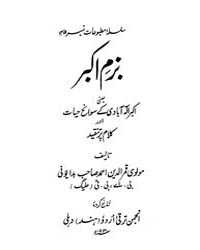 سلسلۂ مطبوعات نمبر
بزم اکبر
یعنی
اکبر الہ آبادی کے سوانح حیات
اور
کلام پر تنقید
تالیف
مولوی قمر الدین احمد صاحب بدایونی
بی۔ اے، بی۔ ٹی (علیگ)
شائع کردہ
انجمن ترقی اردو (ہند) دہلی